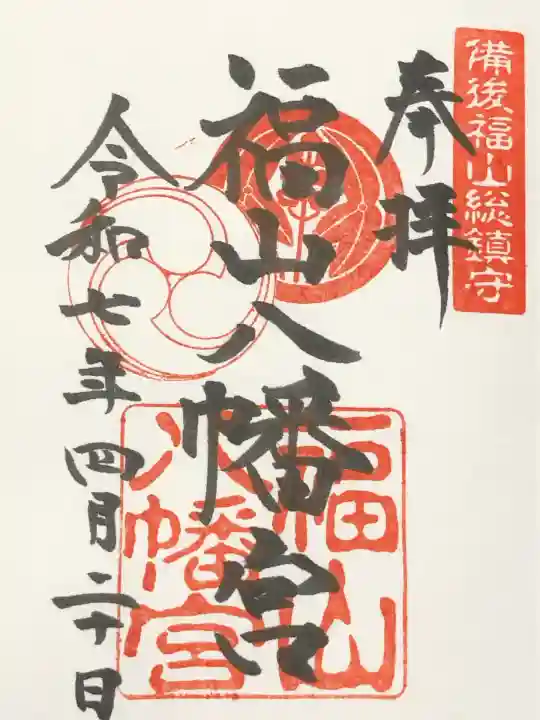 備後福山総鎮守
奉拝
福山八幡宮
令和七年四月二十日
福山
八幡宮